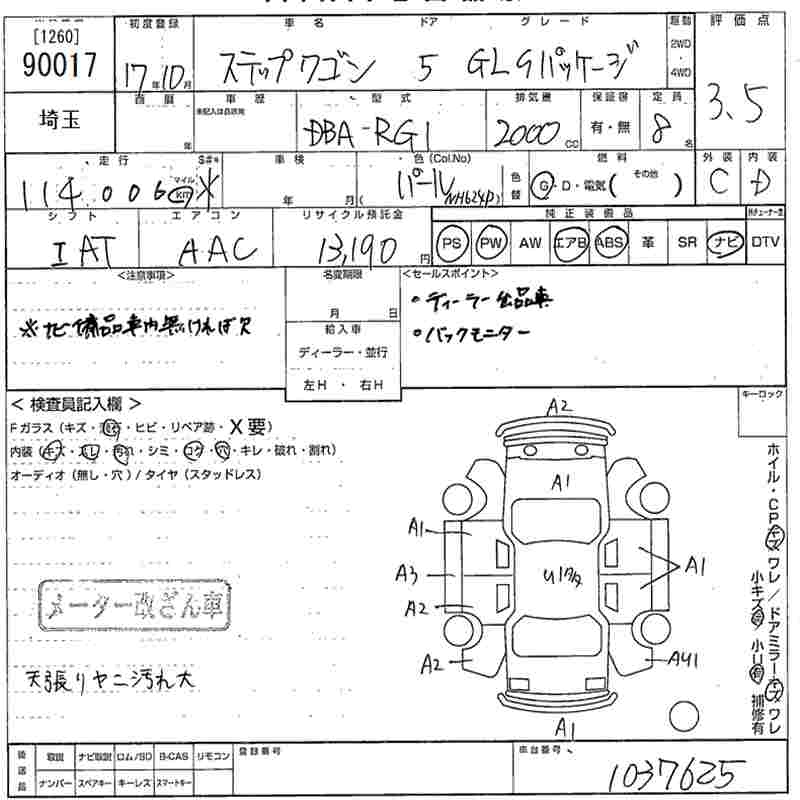 [1260]
90017
埼玉
初度登録
17年10月
車名
ステップワゴン
ドア
5
グレード
GLGパッケージ
駆動
2WD
・
4WD
評価点
3.5
首届
年
車歴
未記入は自家用
型式
DBA-RG1
排気機
2000cc
保証書
有・無
定員
8名
走行
S#*
114006
マイル
km
※
車検
年 月
色(Col.No)
パール
NH624P
色替
燃料
G・D・電気( その他 )
外装
C
内装
D
シフト
IAT
エアコン
AAC
リサイクル預託金
13,190円
純正装備品
PS PW AW エアB ABS 革 SR ナビ DTV
<注意事項>
※ナビ備品車内無ければ欠
名変期限
月 日
輸入車
ディーラー・並行
左H・右H
<セールスポイント>
・ディーラー出品車
・バックモニター
キーロック
<検査員記入欄>
Fガラス(キズ・・ヒビ・リペア跡・X要)
内装(キズ・・汚れ・シミ・コゲ・穴・キレ・破れ・割れ)
オーディオ(無し・穴)/タイヤ(スタッドレス)
メーター改ざん車
天張リヤニ汚れ大
A2
A1
A1
A3
A2
A2
A1
A1
ホイル・CPキズワレ/ドアミラーキズワレ
小キズ有 小U有 補修有
後送品
取説 ナビ取説 ロム/SD B-CAS リモコン
ナンバー スペアキー キーレス スマートキー
登録番号
車台番号
1037625